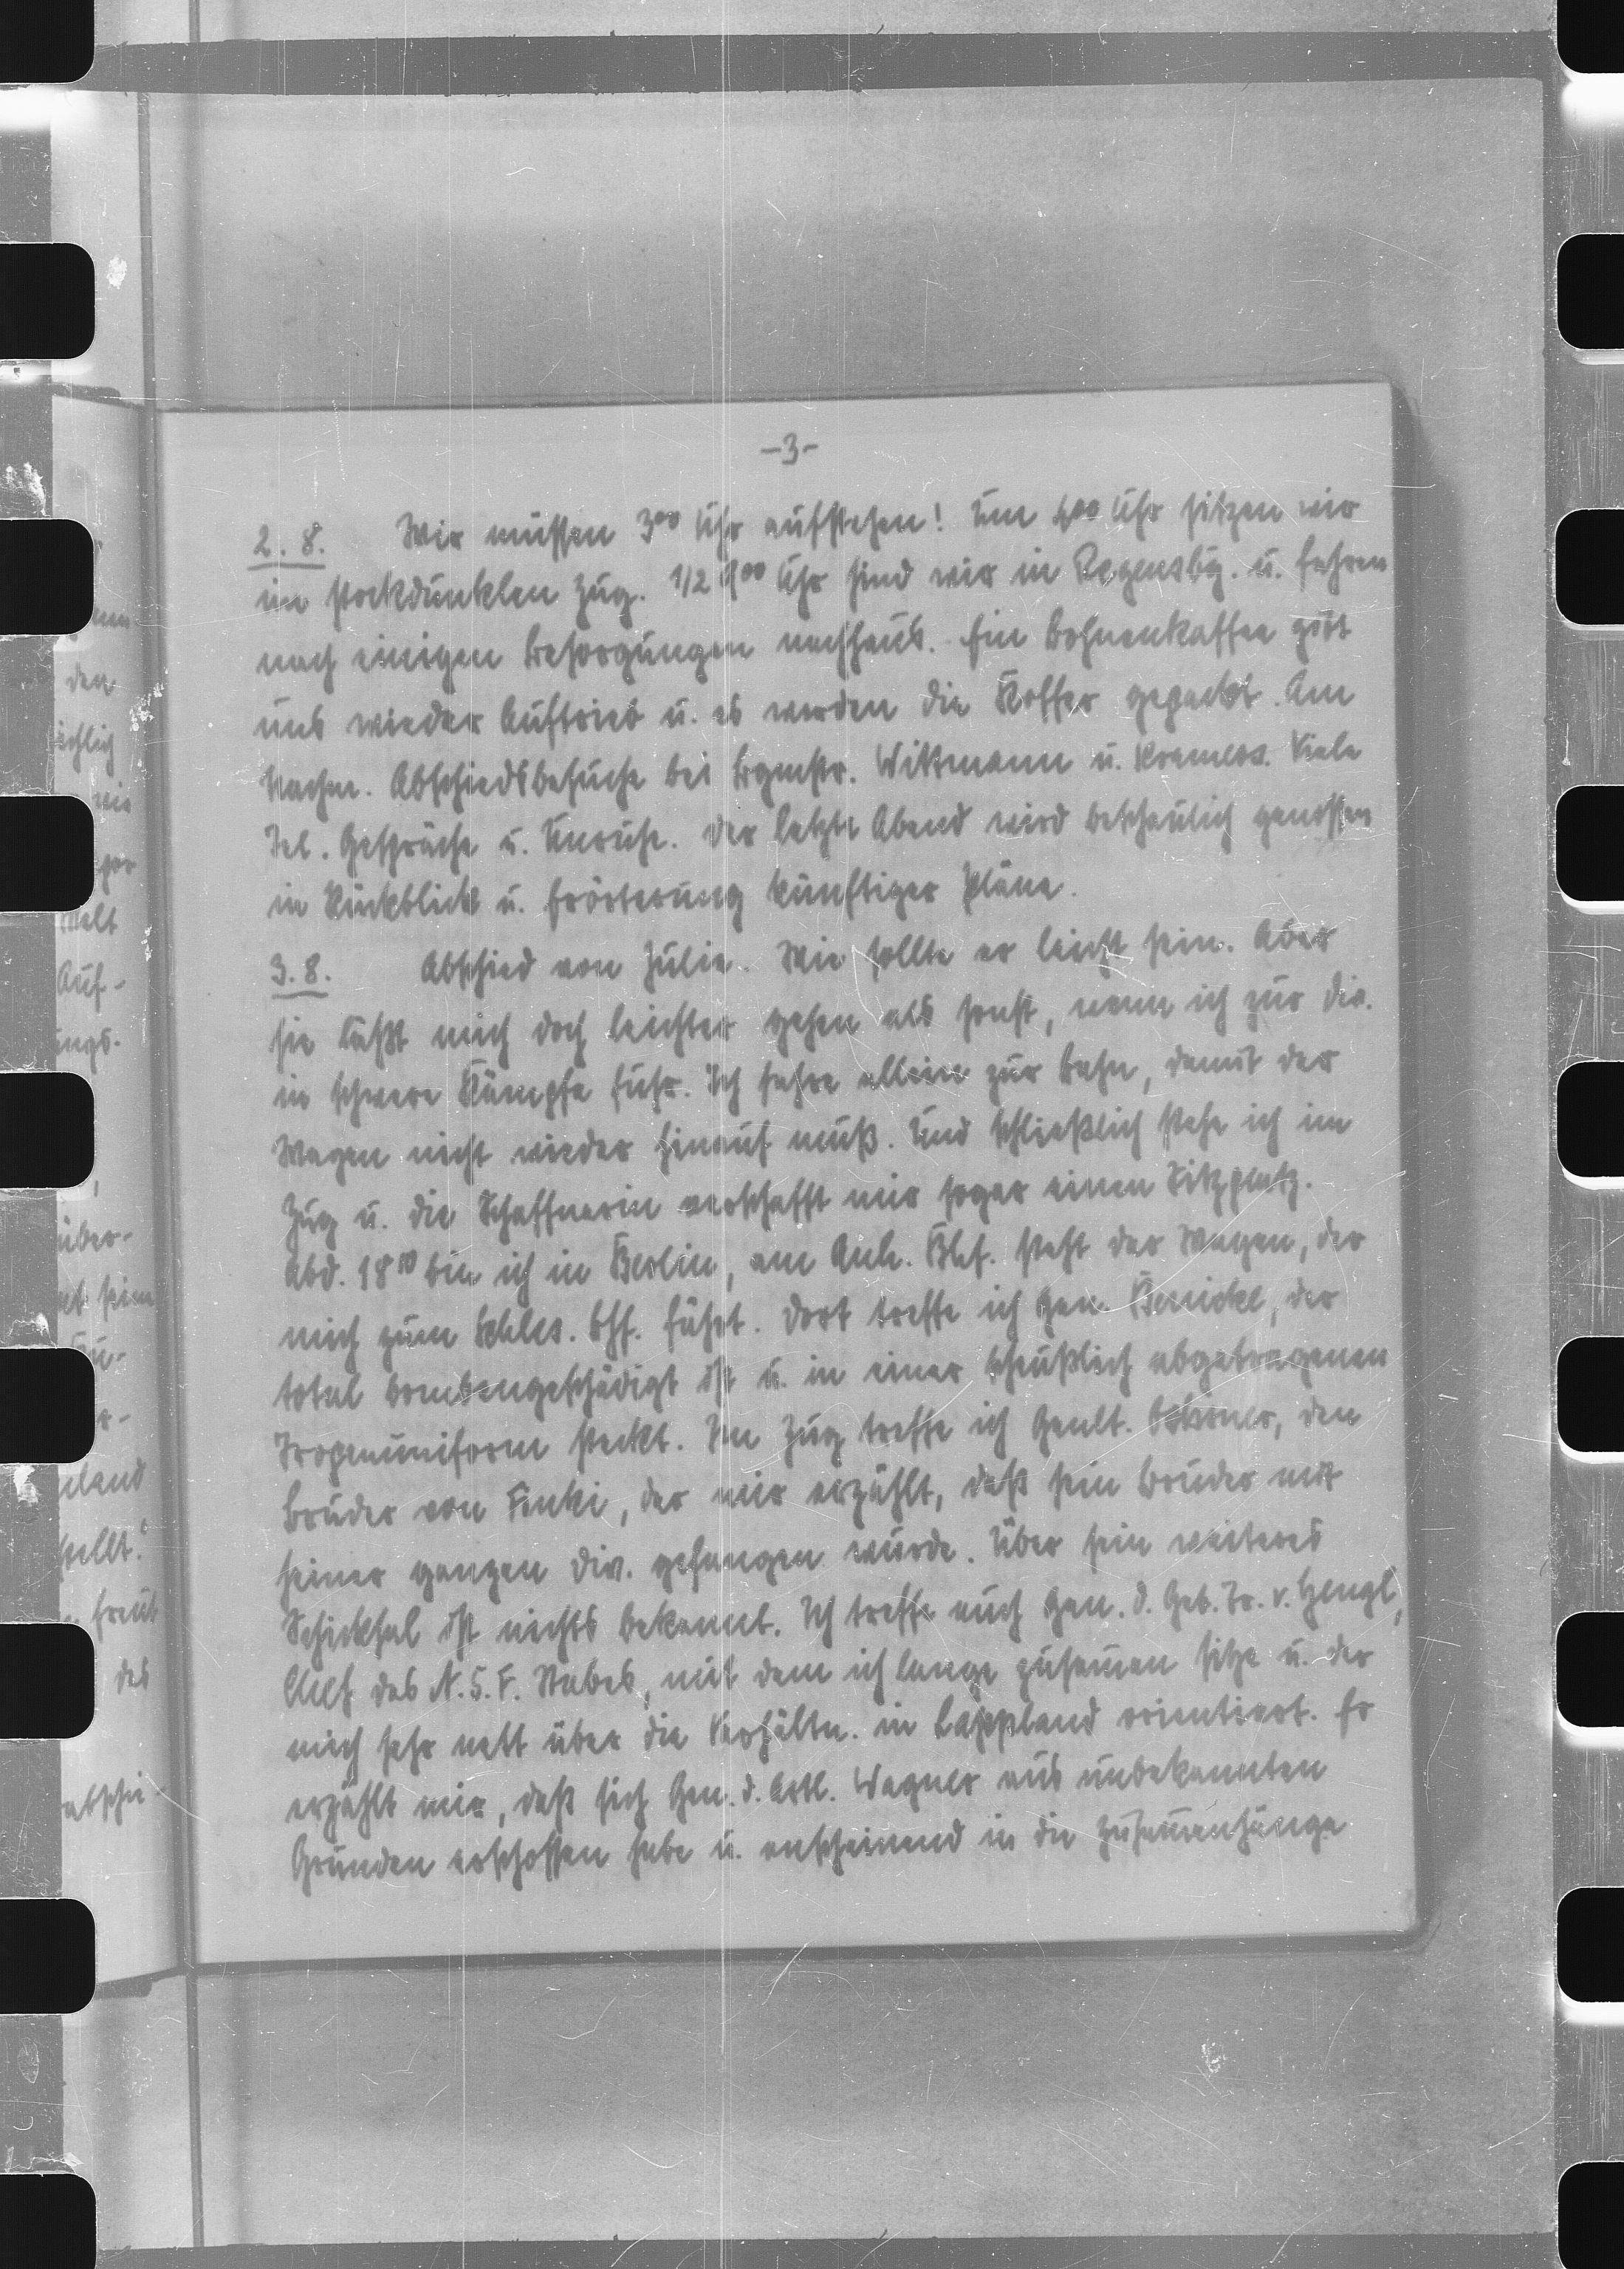 -3-
2. 8. Wir müssen 3⁰⁰ Uhr aufstehen! Um 4⁰⁰ Uhr sitzen wir
im stockdunklen Zug. 1/2 9⁰⁰ Uhr sind wir in Regensbg. u. fahren
nach einigen Besorgungen nachhaus. Ein Bohnenkaffee gibt
uns wieder Auftrieb u. es werden die Koffer gepackt. Am
Nachm. Abschiedsbesuche bei Bgmstr. Wittmann u. Kramers. Viele
Tel. Gespräche u. Unruhe. Der letzte Abend wird beschaulich genossen
in Rückblick u. Erörterung künftiger Pläne.
3. 8. Abschied von Julie. Wie sollte er leicht sein. Aber
sie läßt mich doch leichter gehen als sonst, wenn ich zur Div.
in schwere Kämpfe fuhr. Ich fahre allein zur Bahn, damit der
Wagen nicht wieder hinauf muß. Und schließlich stehe ich im
Zug u. die Schaffnerin verschafft mir sogar einen Sitzplatz.
Abd. 18¹⁰ bin ich in Berlin, am Anh. Bhf. steht der Wagen, der
mich zum Schles. Bhf. fährt. Dort treffe ich Gen. der
total bombengeschädigt ist u. in einer scheußlich abgetragenen
Tropenuniform steckt. Im Zug treffe ich Genlt. den
Bruder von der mir erzählt, daß sein Bruder mit
seiner ganzen Div. gefangen wurde. Über sein weiteres
Schicksal ist nichts bekannt. Ich treffe auch Gen. d. Geb. Tr. v. Hengl,
Chef des N.S.F. Stabes, mit dem ich lange zusam̅en sitze u. der
mich sehr nett über die Verhältn. in Lappland orientiert. Er
erzählt mir, daß sich Gen. d. Artl. Wagner aus unbekannten
Gründen erschossen habe u. anscheinend in die Zusam̅enhänge
den
wie
Welt
Auf-
ungs-
über-
stellt.
des